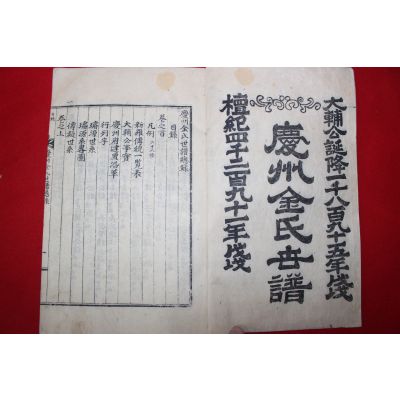 大輔公誕降一千八百九十五年戊戌
慶州金氏世譜
檀紀四千二百九十一年戊戌
慶州金氏世譜總錄
目錄
卷之首
凡例
新羅傳統一覽表
大輔公事實
慶州府建置沿革
行列字
璿源世系圖
璿源世系
世系
卷之上